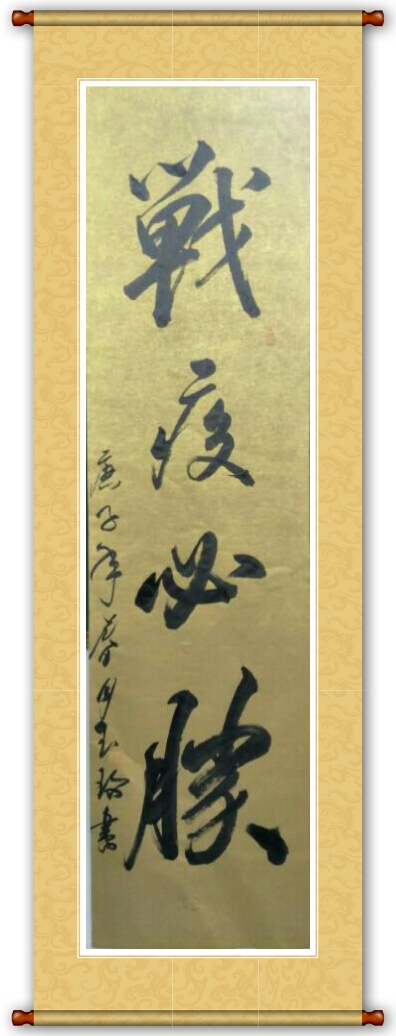 戰疫必勝
庚子年春月玉書